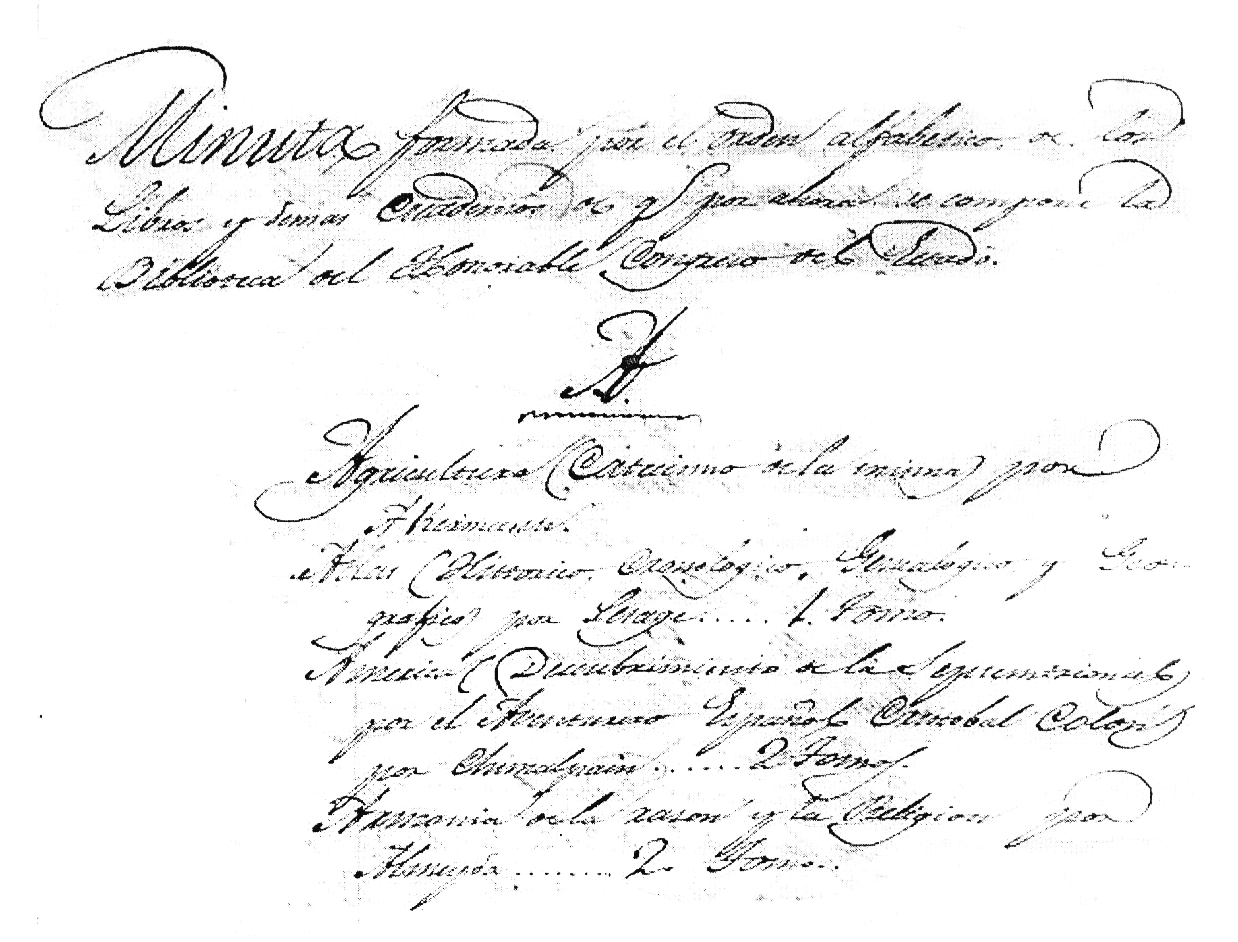 Minuta formada por el orden alfabetico de los
Libros y demas Cuadernos de q.e por ahora se compone la
Biblioteca del Honorable Congreso del Estado.
A.
Agricultura (Catecismo de la misma) por
Akerman
Atlas (Historico, Cronologico, Genealogico y Geo
grafico) por Lesage..... 1. Tomo.
America (Descubrimiento de la Septentrional)
por el Aventurero Español Cristobal Colon)
por Chimalpain ...... 2 Tomos.
Armonia de la razon y la Religion por
Almeyda ........ 2. Tomos.